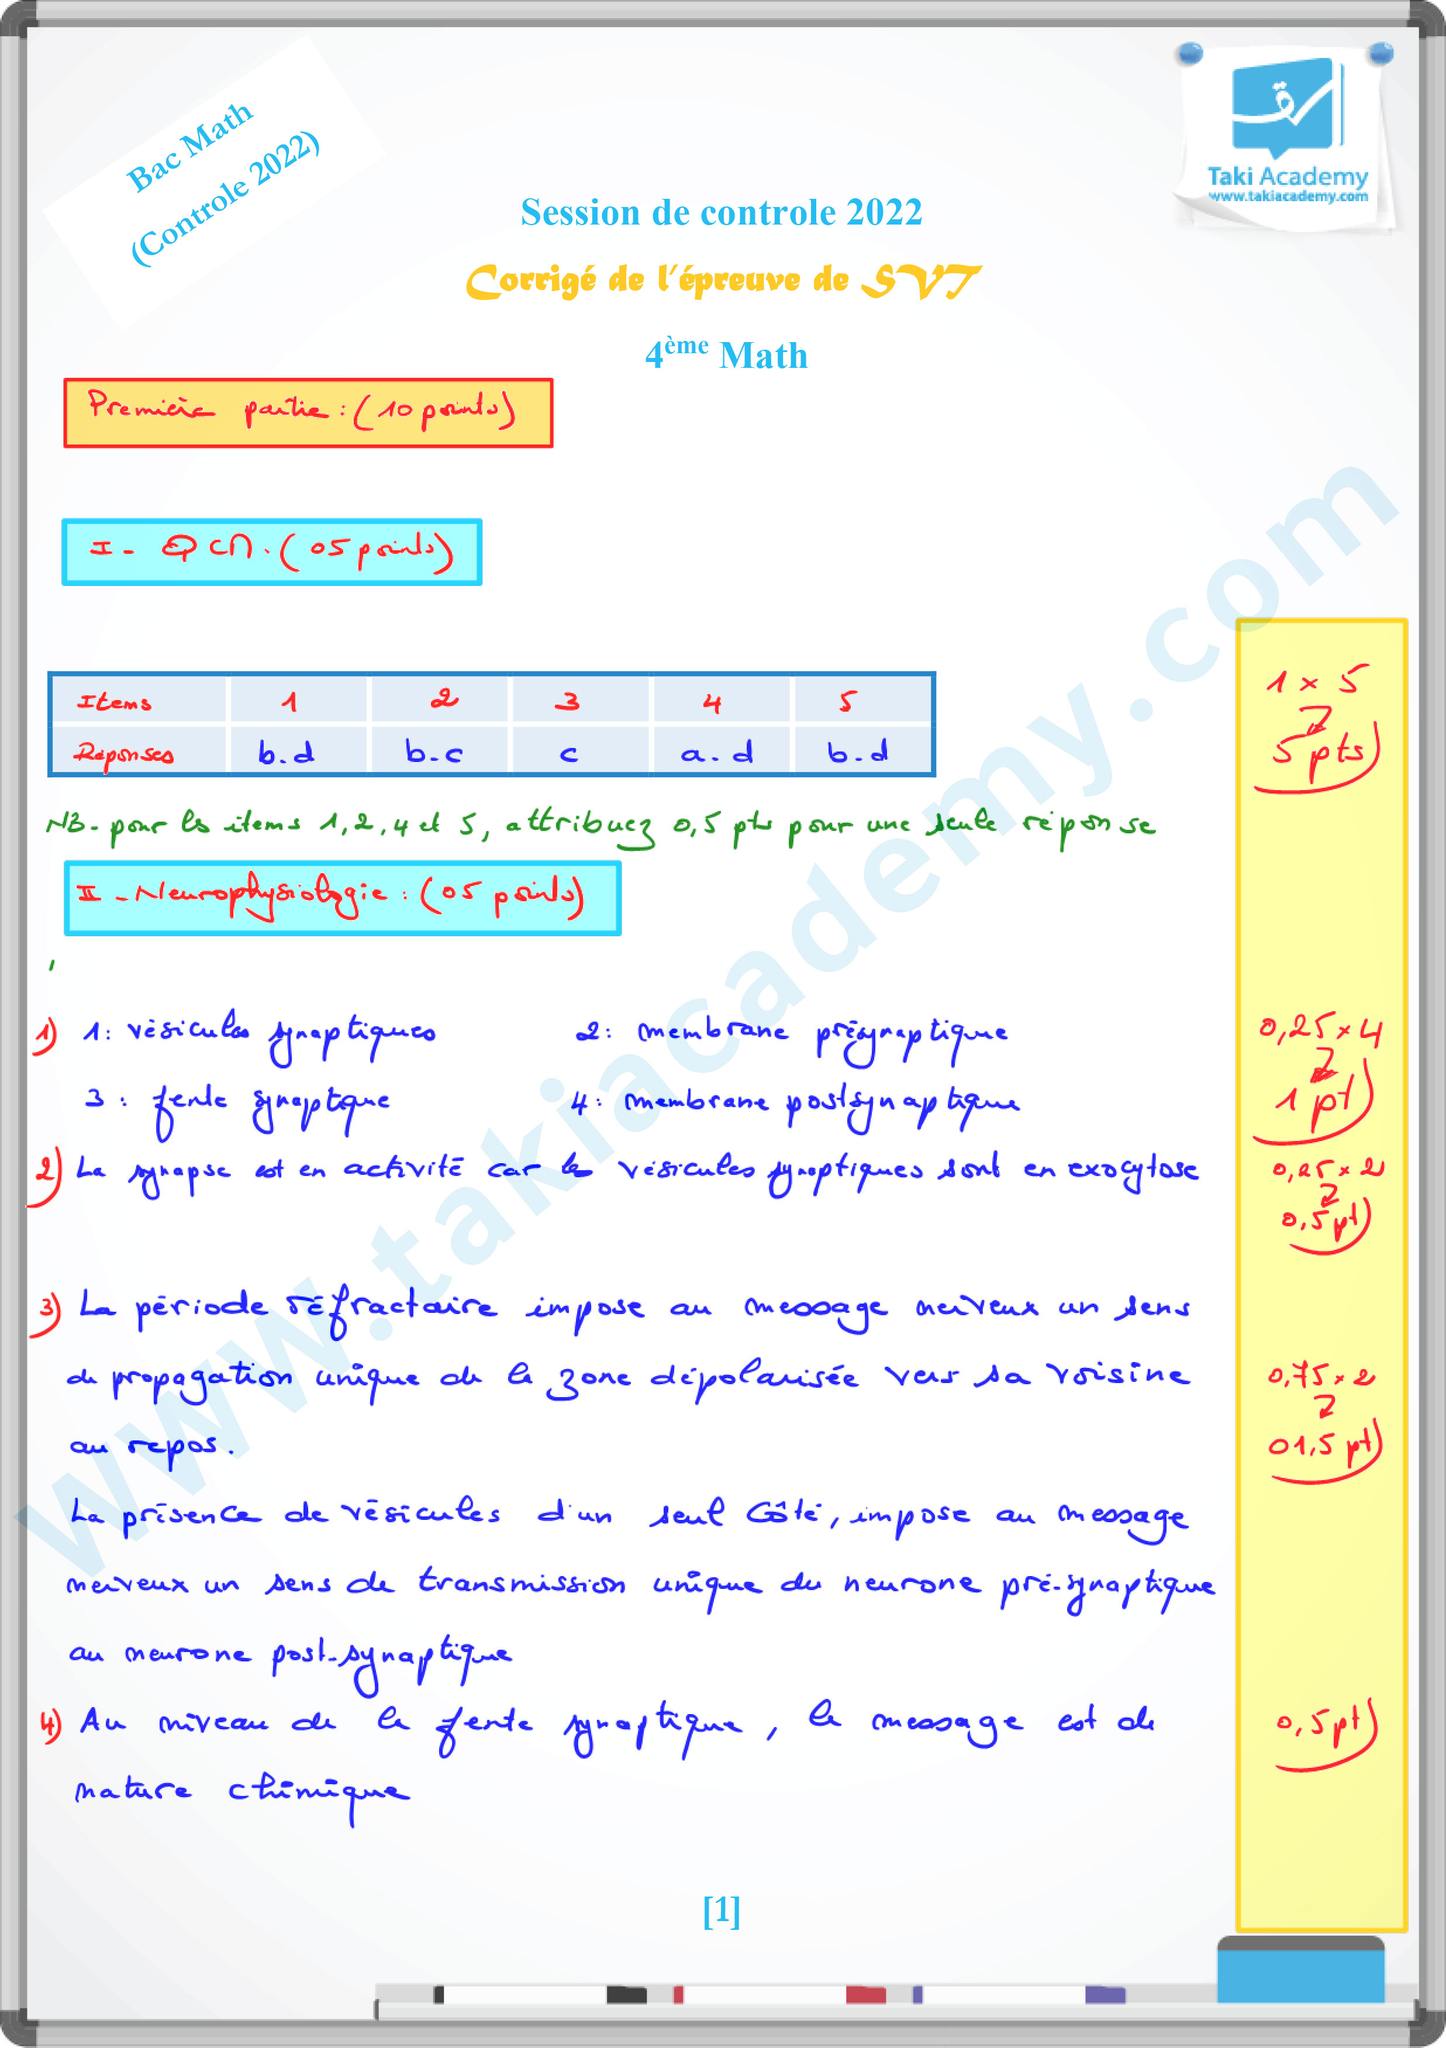 Bac Math
(Controle 2022)
Taki Academy
www.takiacademy.com
Session de controle 2022
Corrigé de l'épreuve de SVT
4ème Math
Première partie : (10 points)
I - QCM. (05 points)
Items 1 2 3 4 5
Réponses b.d b.c c a.d b.d
1 × 5
5 pts
NB- pour les items 1, 2, 4 et 5, attribuez 0,5 pts pour une seule réponse
II - Neurophysiologie : (05 points)
1) 1: vésicules synaptiques 2: membrane présynaptique
0,25 × 4
3 : fente synaptique 4: membrane postsynaptique
1 pt
2) La synapse est en activité car les vésicules synaptiques sont en exocytose
0,25 × 2
0,5 pt
3) La période réfractaire impose au message nerveux un sens
de propagation unique de la zone dépolarisée vers sa voisine
0,75 × 2
au repos.
01,5 pt
La présence de vésicules d'un seul côté, impose au message
nerveux un sens de transmission unique du neurone pré-synaptique
au neurone post-synaptique
4) Au niveau de la fente synaptique, le message est de
0,5 pt
nature chimique
[1]
www.takiacademy.com